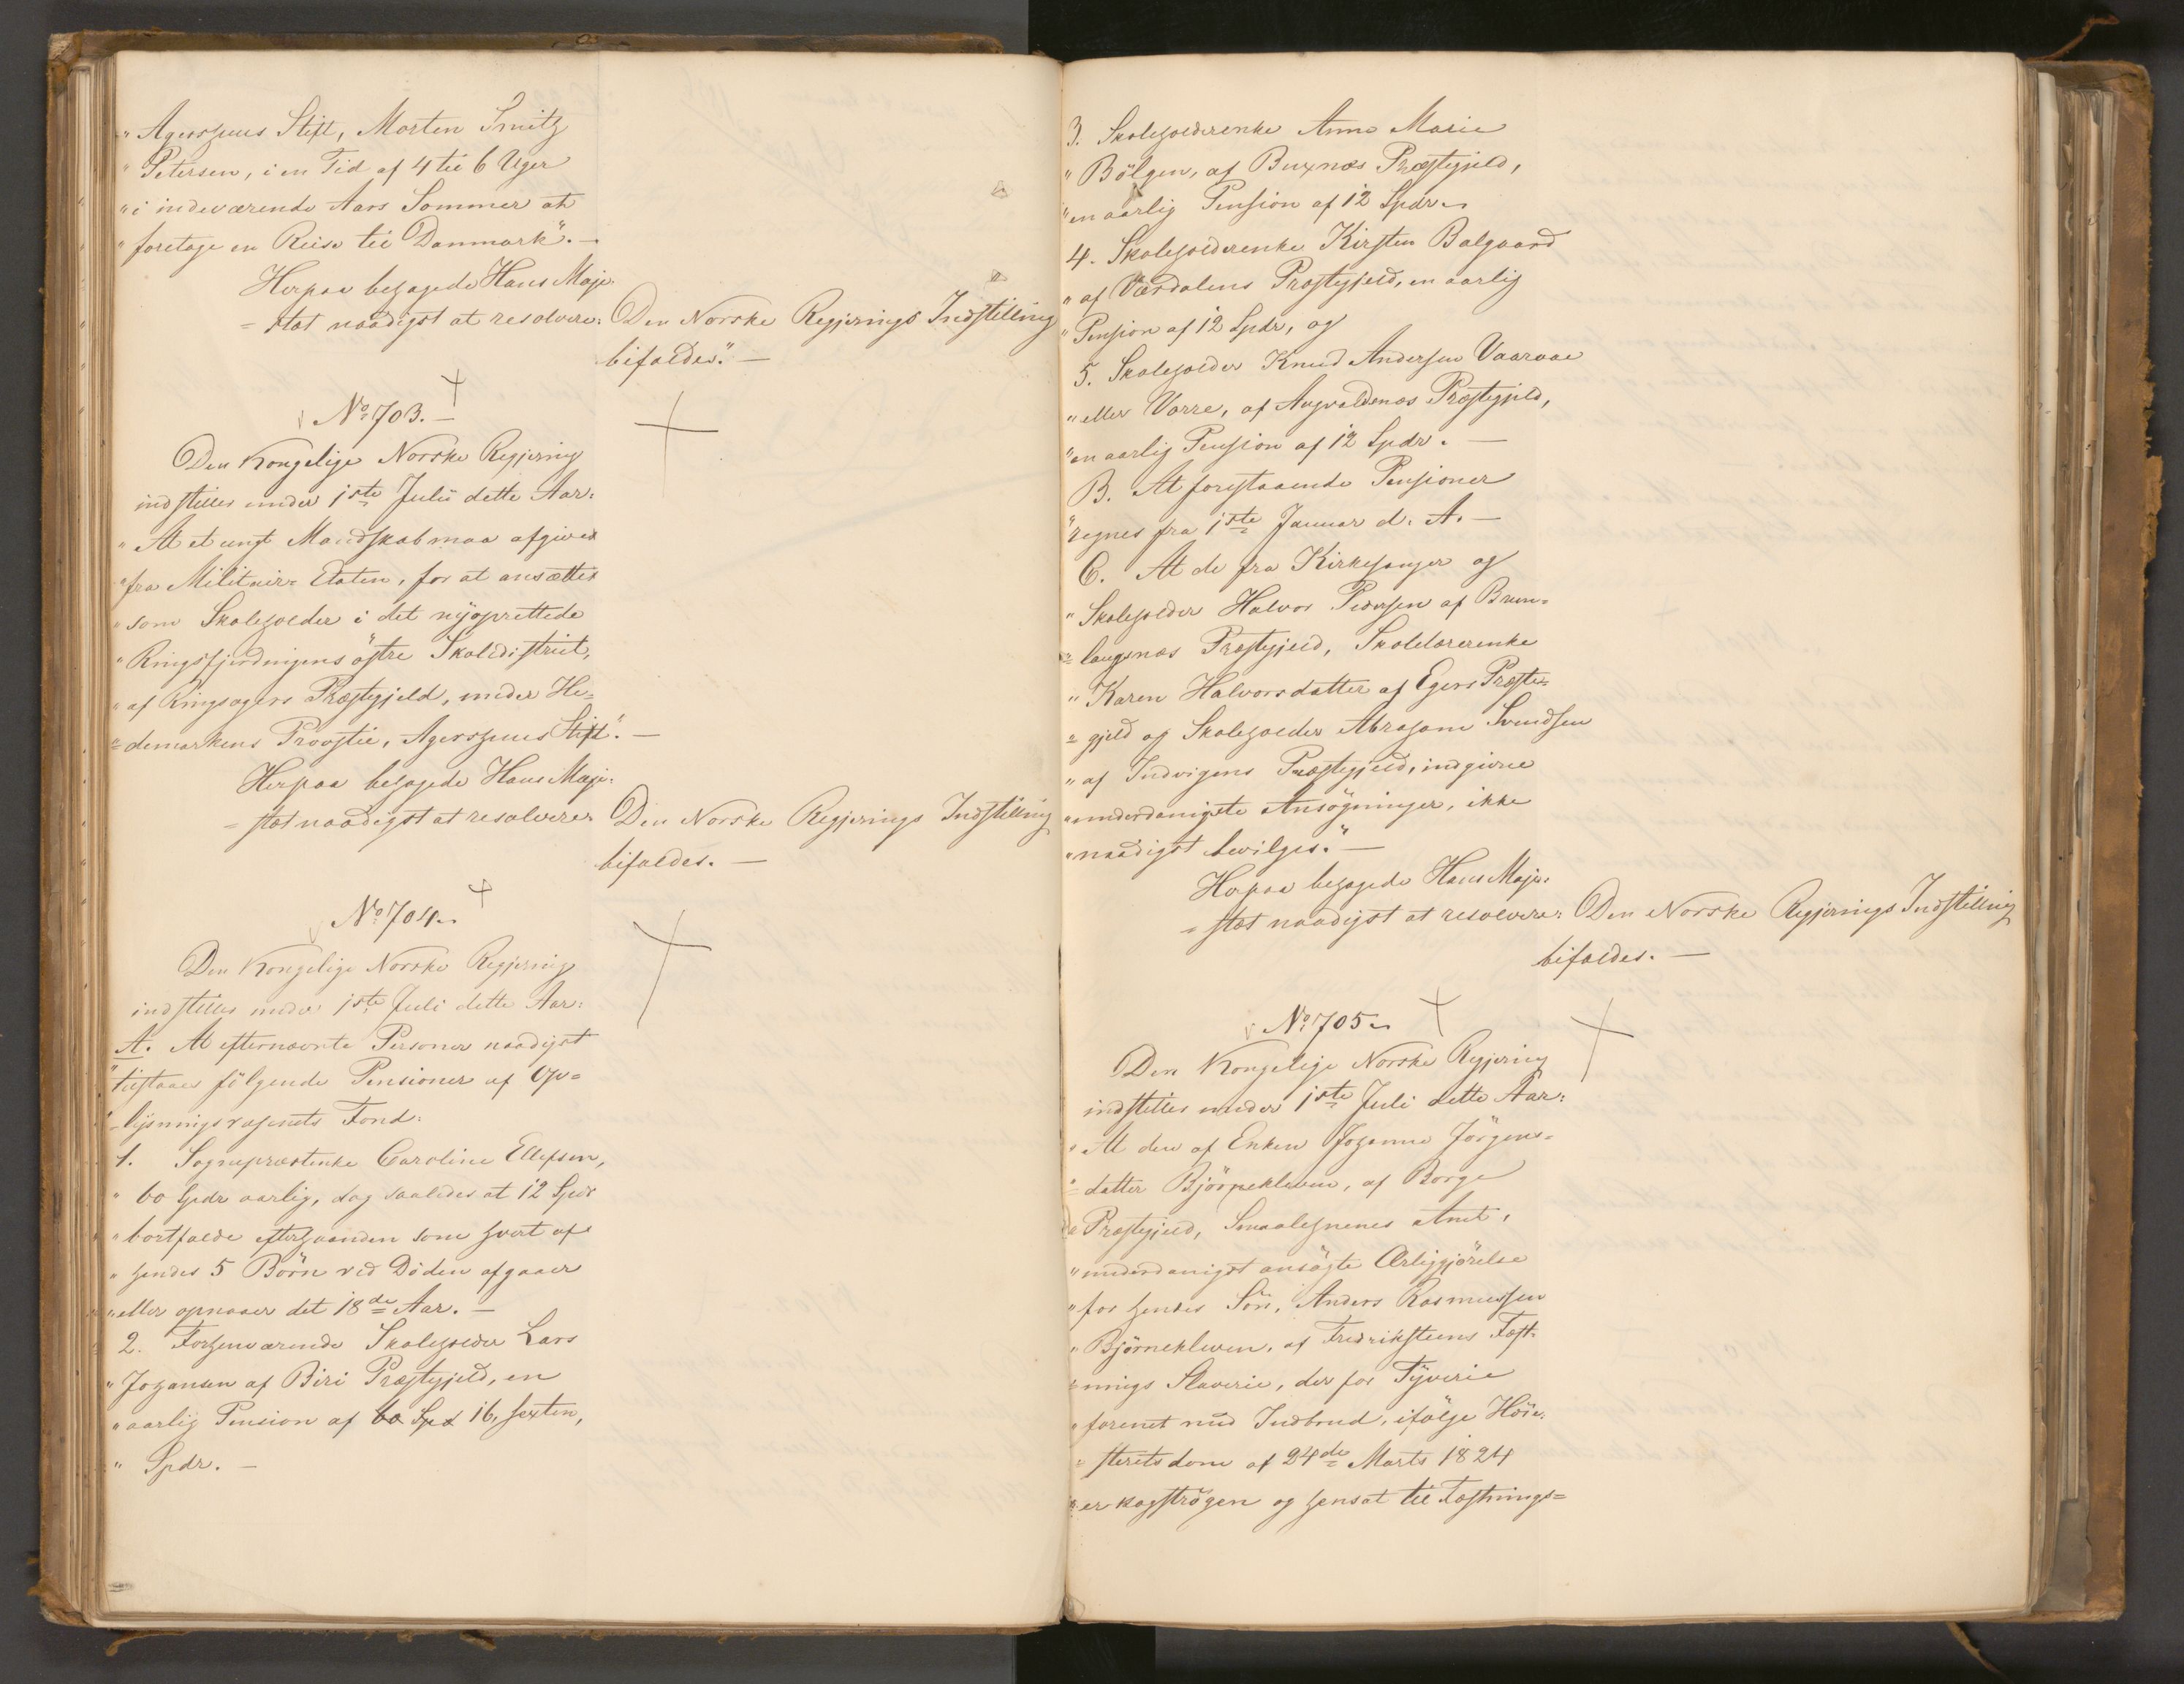 "Agershuus Stift, Morten Smith
"Petersen, i en Tid af 4 til 6 Uger
"i indeværende Aars Sommer at
"foretage en Reise til Danmark". -
Herpaa behagede Hans Maje-
=stæt naadigst at resolvere: Den Norske Regjerings Indstilling
bifaldes." -
No 703. -
Den Kongelige Norske Regjering
indstiller under 1ste Juli dette Aar:
"At et ungt Mandskab maa afgives
"fra Militair-Etaten, for at ansættes
"som Skoleholder i det nyoprettede
"Ringsfjerdingens östre Skoledistrict,
"af Ringsagers Præstegjeld, under He-
=demarkens Provstie, Agershuus Stift". -
Herpaa behagede Hans Maje-
=stæt naadigst at resolvere: Den Norske Regjerings Indstilling
bifaldes. -
No 704.
Den Kongelige Norske Regjering
indstiller under 1ste Juli dette Aar:
A. At efternævnte Personer naadigst
"tilstaaes følgende Pensioner af Op=
-lysningsvæsenets Fond:
1. Sognepræstenke Caroline Ellefsen,
"60 Spdr aarlig, dog saaledes at 12 Spdr
"bortfalde efterhaanden som hvert af
"hendes 5 Börn ved Döden afgaaer
"eller opnaaer det 18de Aar. -
2. Forhenværende Skoleholder Lars
"Johansen af Biri Præstegjeld, en
"aarlig Pension af 60 Spd 16, sexten,
" Spdr. -
3. Skoleholderenke Anne Marie
"Bölgen, af Buxnæs Præstegjeld,
"en aarlig Pension af 12 Spdr.
4. Skoleholderenke Kirsten Balgaard
"af Værdalens Præstegjeld, en aarlig
"Pension af 12 Spdr, og
5. Skoleholder Knud Andersen Vaaraae
"eller Varre, af Augvaldsnæs Præstegjeld,
"en aarlig Pension af 12 Spdr. -
B. At forestaaende Pensioner
"regnes fra 1ste Januar d. A. -
C. At de fra Kirkesanger og
"Skoleholder Halvor Pedersen af Brun-
=laugnæs Præstegjeld, Skolelærerenke
"Karen Halvorsdatter af Egers Præste=
=gjeld og Skoleholder Abraham Svendsen
"af Indvigens Præstegjeld, indgivne
"underdanigste Ansögninger, ikke
"naadigst bevilges." -
Herpaa behagede Hans Maje-
=stæt naadigst at resolvere: Den Norske Regjerings Indstilling
bifaldes. -
No 705.
Den Kongelige Norske Regjering
indstiller under 1ste Juli dette Aar:
"At den af Enken Johanne Jörgens=
=datter Björnekleven, af Borge
"Præstegjeld, Smaalehnenes Amt,
"underdanigst ansögte Ærliggjörelse
"for hendes Sön, Anders Rasmussen
"Björnekleven, af Fredriksteens Fæst-
=nings Slaverie, der for Tyverie
"forenet med Indbrud, ifölge Höie-
=steretsdom af 24de Marts 1824
"er kagströgen og hensat til Fæstnings=